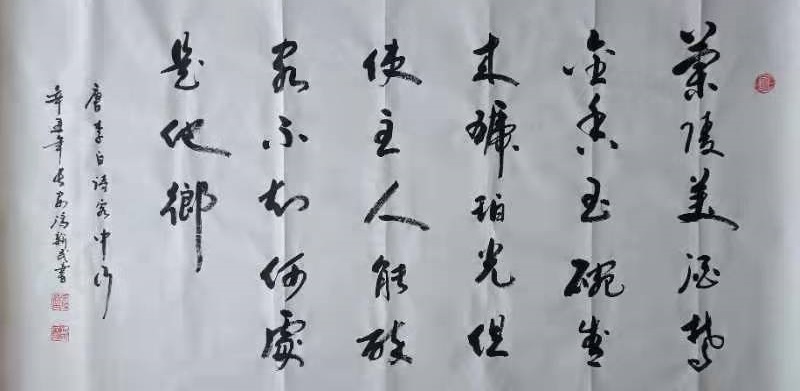 蘭陵美酒鬱
金香玉碗盛
来琥珀光但
使主人能醉
客不知何處
是他鄉
唐李白诗客中行
辛丑年长安冯新民書